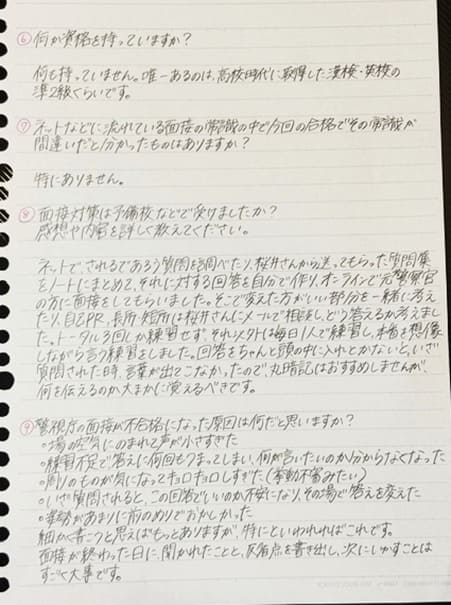 ⑥何か資格を持っていますか？
何も持っていません。唯一あるのは、高校時代に取得した漢検・英検の
準2級くらいです。
⑦ネットなどに流れている面接の常識の中で今回の合格でその常識が
間違いだと分かったものはありますか？
特にありません。
⑧面接対策は予備校などで受けましたか？
感想や内容を詳しく教えてください。
ネットで、されるであろう質問を調べたり、桜井さんから送ってもらった質問集
をノートにまとめて、それに対する回答を自分で作り、オンラインで元警察官
の方に面接をしてもらいました。そこで変えた方がいい部分を一緒に考え
たり、自己PR、長所・短所は桜井さんにメールで相談し、どう答えるか考えまし
た。トータル3回しか練習せず、それ以外は毎日1人で練習し、本番を想像
しながら言う練習をしました。回答をちゃんと頭の中に入れとかないと、いざ
質問された時、言葉が出てこなかったので、丸暗記はおすすめしませんが、
何を伝えるのか大まかに覚えるべきです。
⑨警視庁の面接が不合格になった原因は何だと思いますか？
・場の空気にのまれて声が小さすぎた
・練習不足で答えに何回もつまってしまい、何が言いたいのか分からなくなった
・周りのものが気になってキョロキョロしすぎた（挙動不審みたい）
・いざ質問されると、この回答でいいのか不安になり、その場で答えを変えた
・姿勢があまりに前のめりでおかしかった
細かく書こうと思えばもっとありますが、特にといわれればこれです。
面接が終わった日に、聞かれたことと、反省点を書き出し、次にいかすことは
すごく大事です。